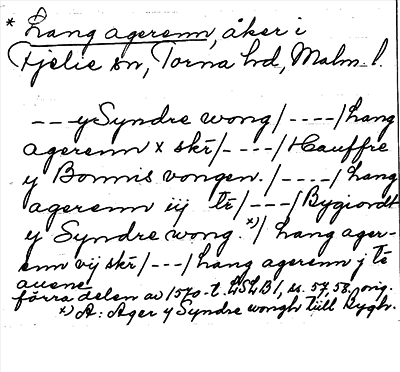 * Lang agerenn, åker i
Fjelie sn, Torna hd, Malm. l.
---y Syndre wong/----/Lang
agerenn x skr̄/----/Hauffre
y Bonnis vongen./----/Lang
agerenn iij tr̄/---/Bygiordt
y Syndre wong.x)/Lang ager-
enn vij skr̄/---/Lang agerenn j tr̄
auene
förra delen av 1570-t. LSLB 1, ss. 57, 58. orig.
x) A: Ager y Syndre wongh tiill Rygh.